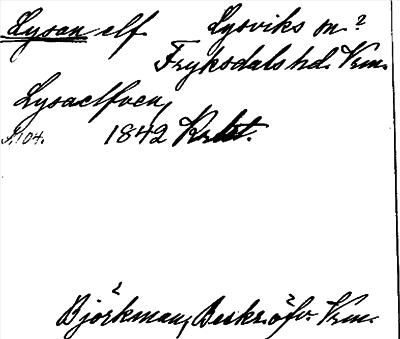 Lysan elf. Lysviks sn.?
Fryksdals hd. Vrm.
Lysaelfven,
S. 104. 1842 Krkt.
Björkman, Beskr. öfv. Vrm.